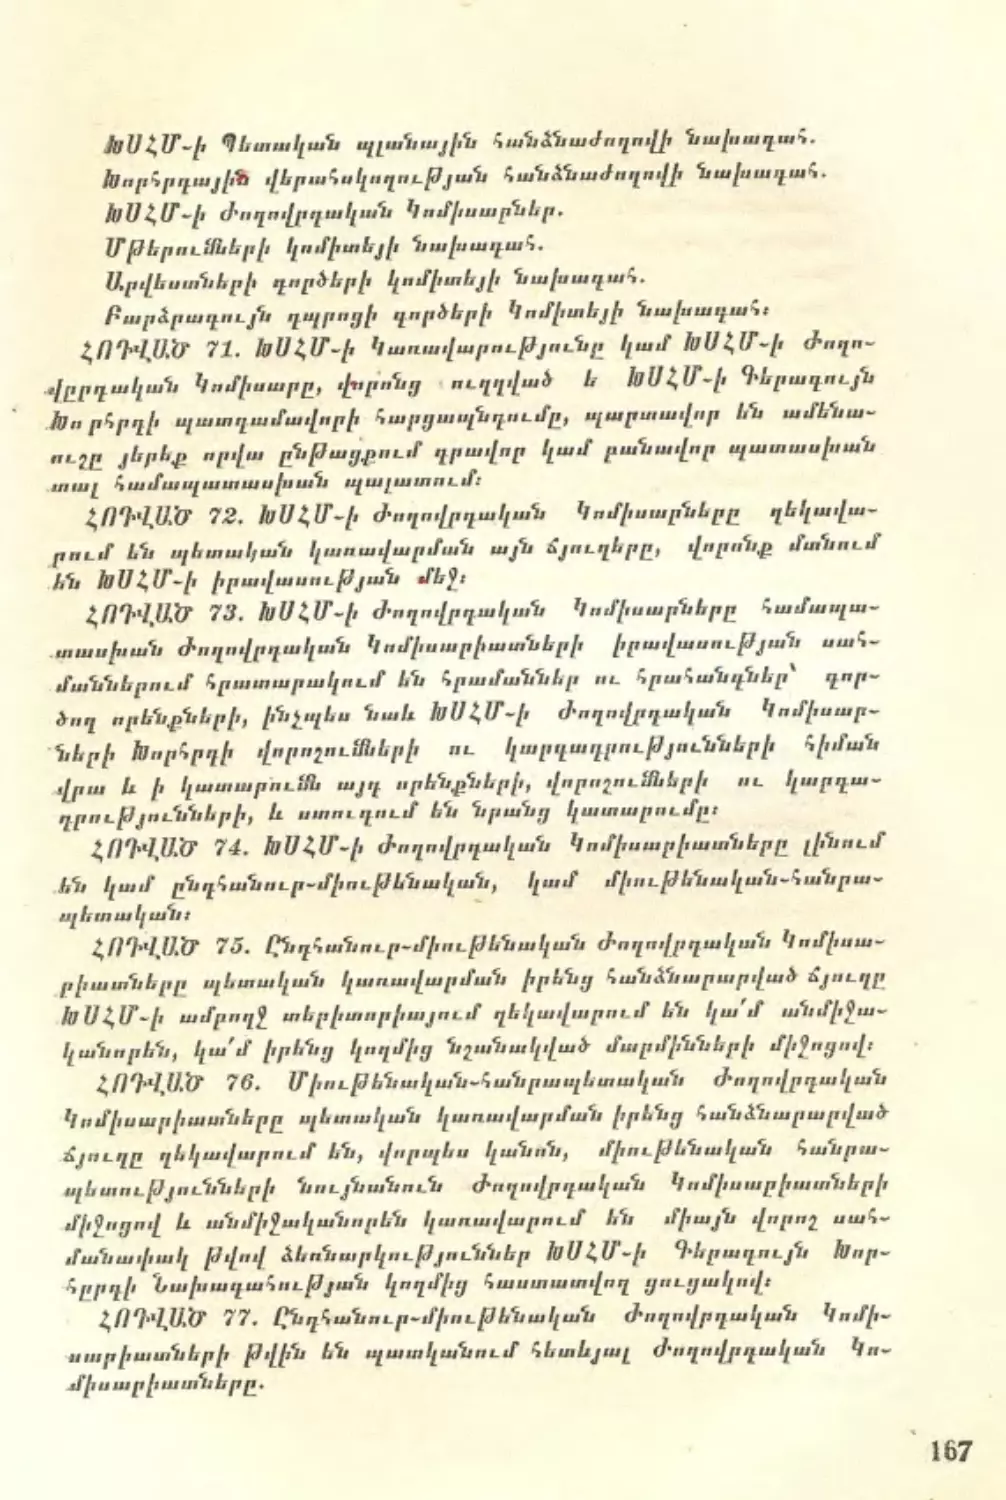 ԽՍՀՄ-ի Պետական պլանային հանձնաժողովի նախագահ.
Խորհրդային վերահսկողության հանձնաժողովի նախագահ.
ԽՍՀՄ-ի Ժողովրդական Կոմիսարներ.
Մթերումների կոմիտեյի նախագահ.
Արվեստների գործերի կոմիտեյի նախագահ.
Բարձրագույն դպրոցի գործերի Կոմիտեյի նախագահ։
ՀՈԴՎԱԾ 71. ԽՍՀՄ-ի Կառավարությունը կամ ԽՍՀՄ-ի Ժողո-
վըրդական Կոմիսարը, վորոնց ուղղված է ԽՍՀՄ-ի Գերագույն
Խորհրդի պատգամավորի հարցապնդումը, պարտավոր են ամենա-
ուշը յերեք որվա ընթացքում գրավոր կամ բանավոր պատասխան
տալ համապատասխան պալատում։
ՀՈԴՎԱԾ 72. ԽՍՀՄ-ի Ժողովրդական Կոմիսարները ղեկավա-
րում են պետական կառավարման այն ճյուղերը, վորոնք մտնում
են ԽՍՀՄ-ի իրավասության մեջ։
ՀՈԴՎԱԾ 73. ԽՍՀՄ-ի Ժողովրդական Կոմիսարները համապա-
տասխան Ժողովրդական Կոմիսարիատների իրավասության սահ-
մաններում հրատարակում են հրամաններ ու հրահանգներ՝ գոր-
ծող որենքների, ինչպես նաև ԽՍՀՄ-ի Ժողովրդական Կոմիսար-
ների Խորհրդի վորոշումների ու կարգադրությունների հիման
վրա և ի կատարումն այդ որենքների, վորոշումների ու կարգա-
դրությունների, և ստուգում են նրանց կատարումը։
ՀՈԴՎԱԾ 74. ԽՍՀՄ-ի Ժողովրդական Կոմիսարիատները լինում
են կամ ընդհանուր-միութենական, կամ միութենական-հանրա-
պետական։
ՀՈԴՎԱԾ 75. Ընդհանուր-միութենական Ժողովրդական Կոմիսա-
րիատները պետական կառավարման իրենց հանձնարարված ճյուղը
ԽՍՀՄ-ի ամբողջ տերիտորիայում ղեկավարում են կա՛մ անմիջա-
կանորեն, կա՛մ իրենց կողմից նշանակված մարմինների միջոցով։
ՀՈԴՎԱԾ 76. Միութենական-հանրապետական Ժողովրդական
Կոմիսարիատները պետական կառավարման իրենց հանձնարարված
ճյուղը ղեկավարում են, վորպես կանոն, միութենական հանրա-
պետությունների նույնանուն Ժողովրդական Կոմիսարիատների
միջոցով և անմիջականորեն կառավարում են միայն վորոշ սահ-
մանափակ թվով ձեռնարկություններ ԽՍՀՄ-ի Գերագույն Խոր-
հըրդի Նախագահության կողմից հաստատվող ցուցակով։
ՀՈԴՎԱԾ 77. Ընդհանուր-միութենական Ժողովրդական Կոմի-
սարիատների թվին են պատկանում հետևյալ Ժողովրդական Կո-
միսարիատները.
167